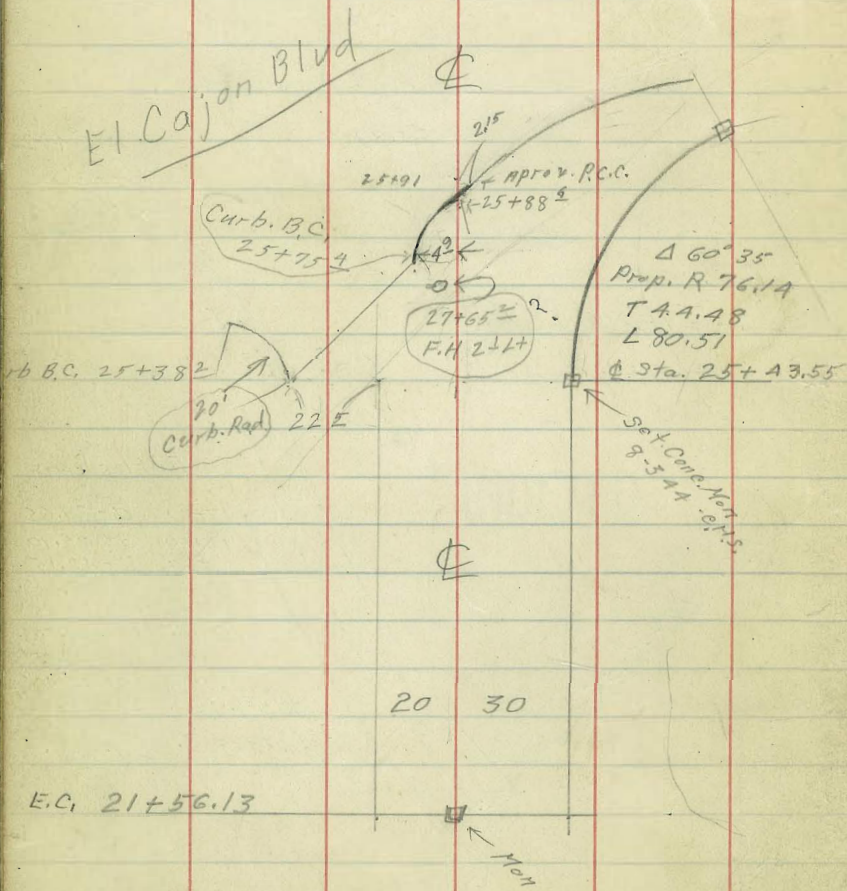 El Cajon Blvd
℄
2.15
25+91
Aprox. P.C.C.
25+88 6
Curb. B.C.
25+75 4
4 9
Δ 60° 35
Prop. R 76.14
T 44.48
L 80.51
℄ Sta. 25+43.55
27+65 2
F.H 2±Lt
?
rb B.C. 25+38 2
20'
Curb. Rad
22 5
Set. Conc. Mon
8-3-44 C.M.S.
℄
20 30
E.C. 21+56.13
Mon